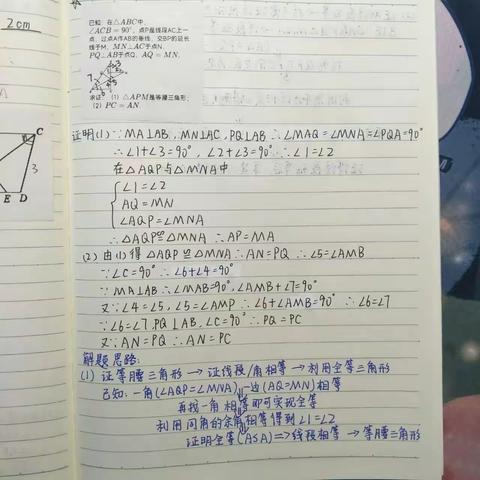 2cm
C
3
E D
已知：在△ABC中，
∠ACB = 90°，点P是线段AC上一
点，过点A作AB的垂线，交BP的延长
线于M，MN⊥AC于点N，
PQ⊥AB于点Q，AQ = MN.
求证：(1) △APM是等腰三角形；
(2) PC = AN.
证明(1)∵MA⊥AB,MN⊥AC,PQ⊥AB∴∠MAQ=∠MNA=∠PQA=90°
∴∠1+∠3=90°,∠2+∠3=90°∴∠1=∠2
在△AQP与△MNA中
∠1=∠2
AQ=MN
∠AQP=∠MNA
∴△AQP≌△MNA∴AP=MA
(2)由(1)得△AQP≌△MNA∴AN=PQ∴∠5=∠AMB
∵∠C=90°∴∠6+∠4=90°
∵MA⊥AB∴∠MAB=90°,∠AMB+∠7=90°
又∵∠4=∠5,∠5=∠AMP∴∠6+∠AMB=90°∴∠6=∠7
∵∠6=∠7,PQ⊥AB,∠C=90°∴PQ=PC
又∵AN=PQ∴AN=PC
解题思路:
(1)证等腰三角形→证线段/角相等→利用全等三角形
已知:一角(∠AQP=∠MNA),一边(AQ=MN)相等
再找一角相等即可实现全等
利用同角的余角相等得到∠1=∠2
证明全等(ASA)=>线段相等→等腰三角形